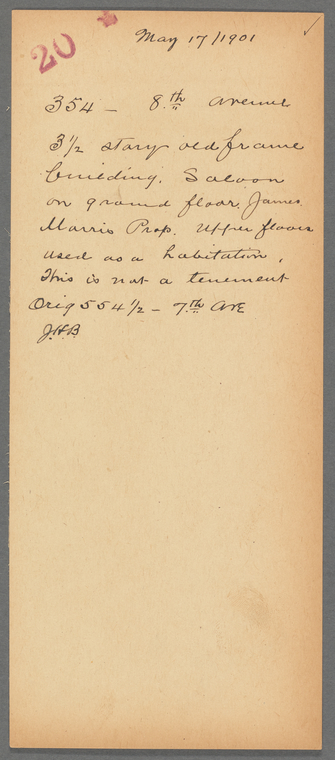 20
May 17/1901
354 - 8.th avenue
3 1/2 story old frame
building. Saloon
on ground floor, James
Morris Prop. Upper floors
used as a habitation,
This is not a tenement
Orig 554 1/2 - 7.th Ave
J.H.B